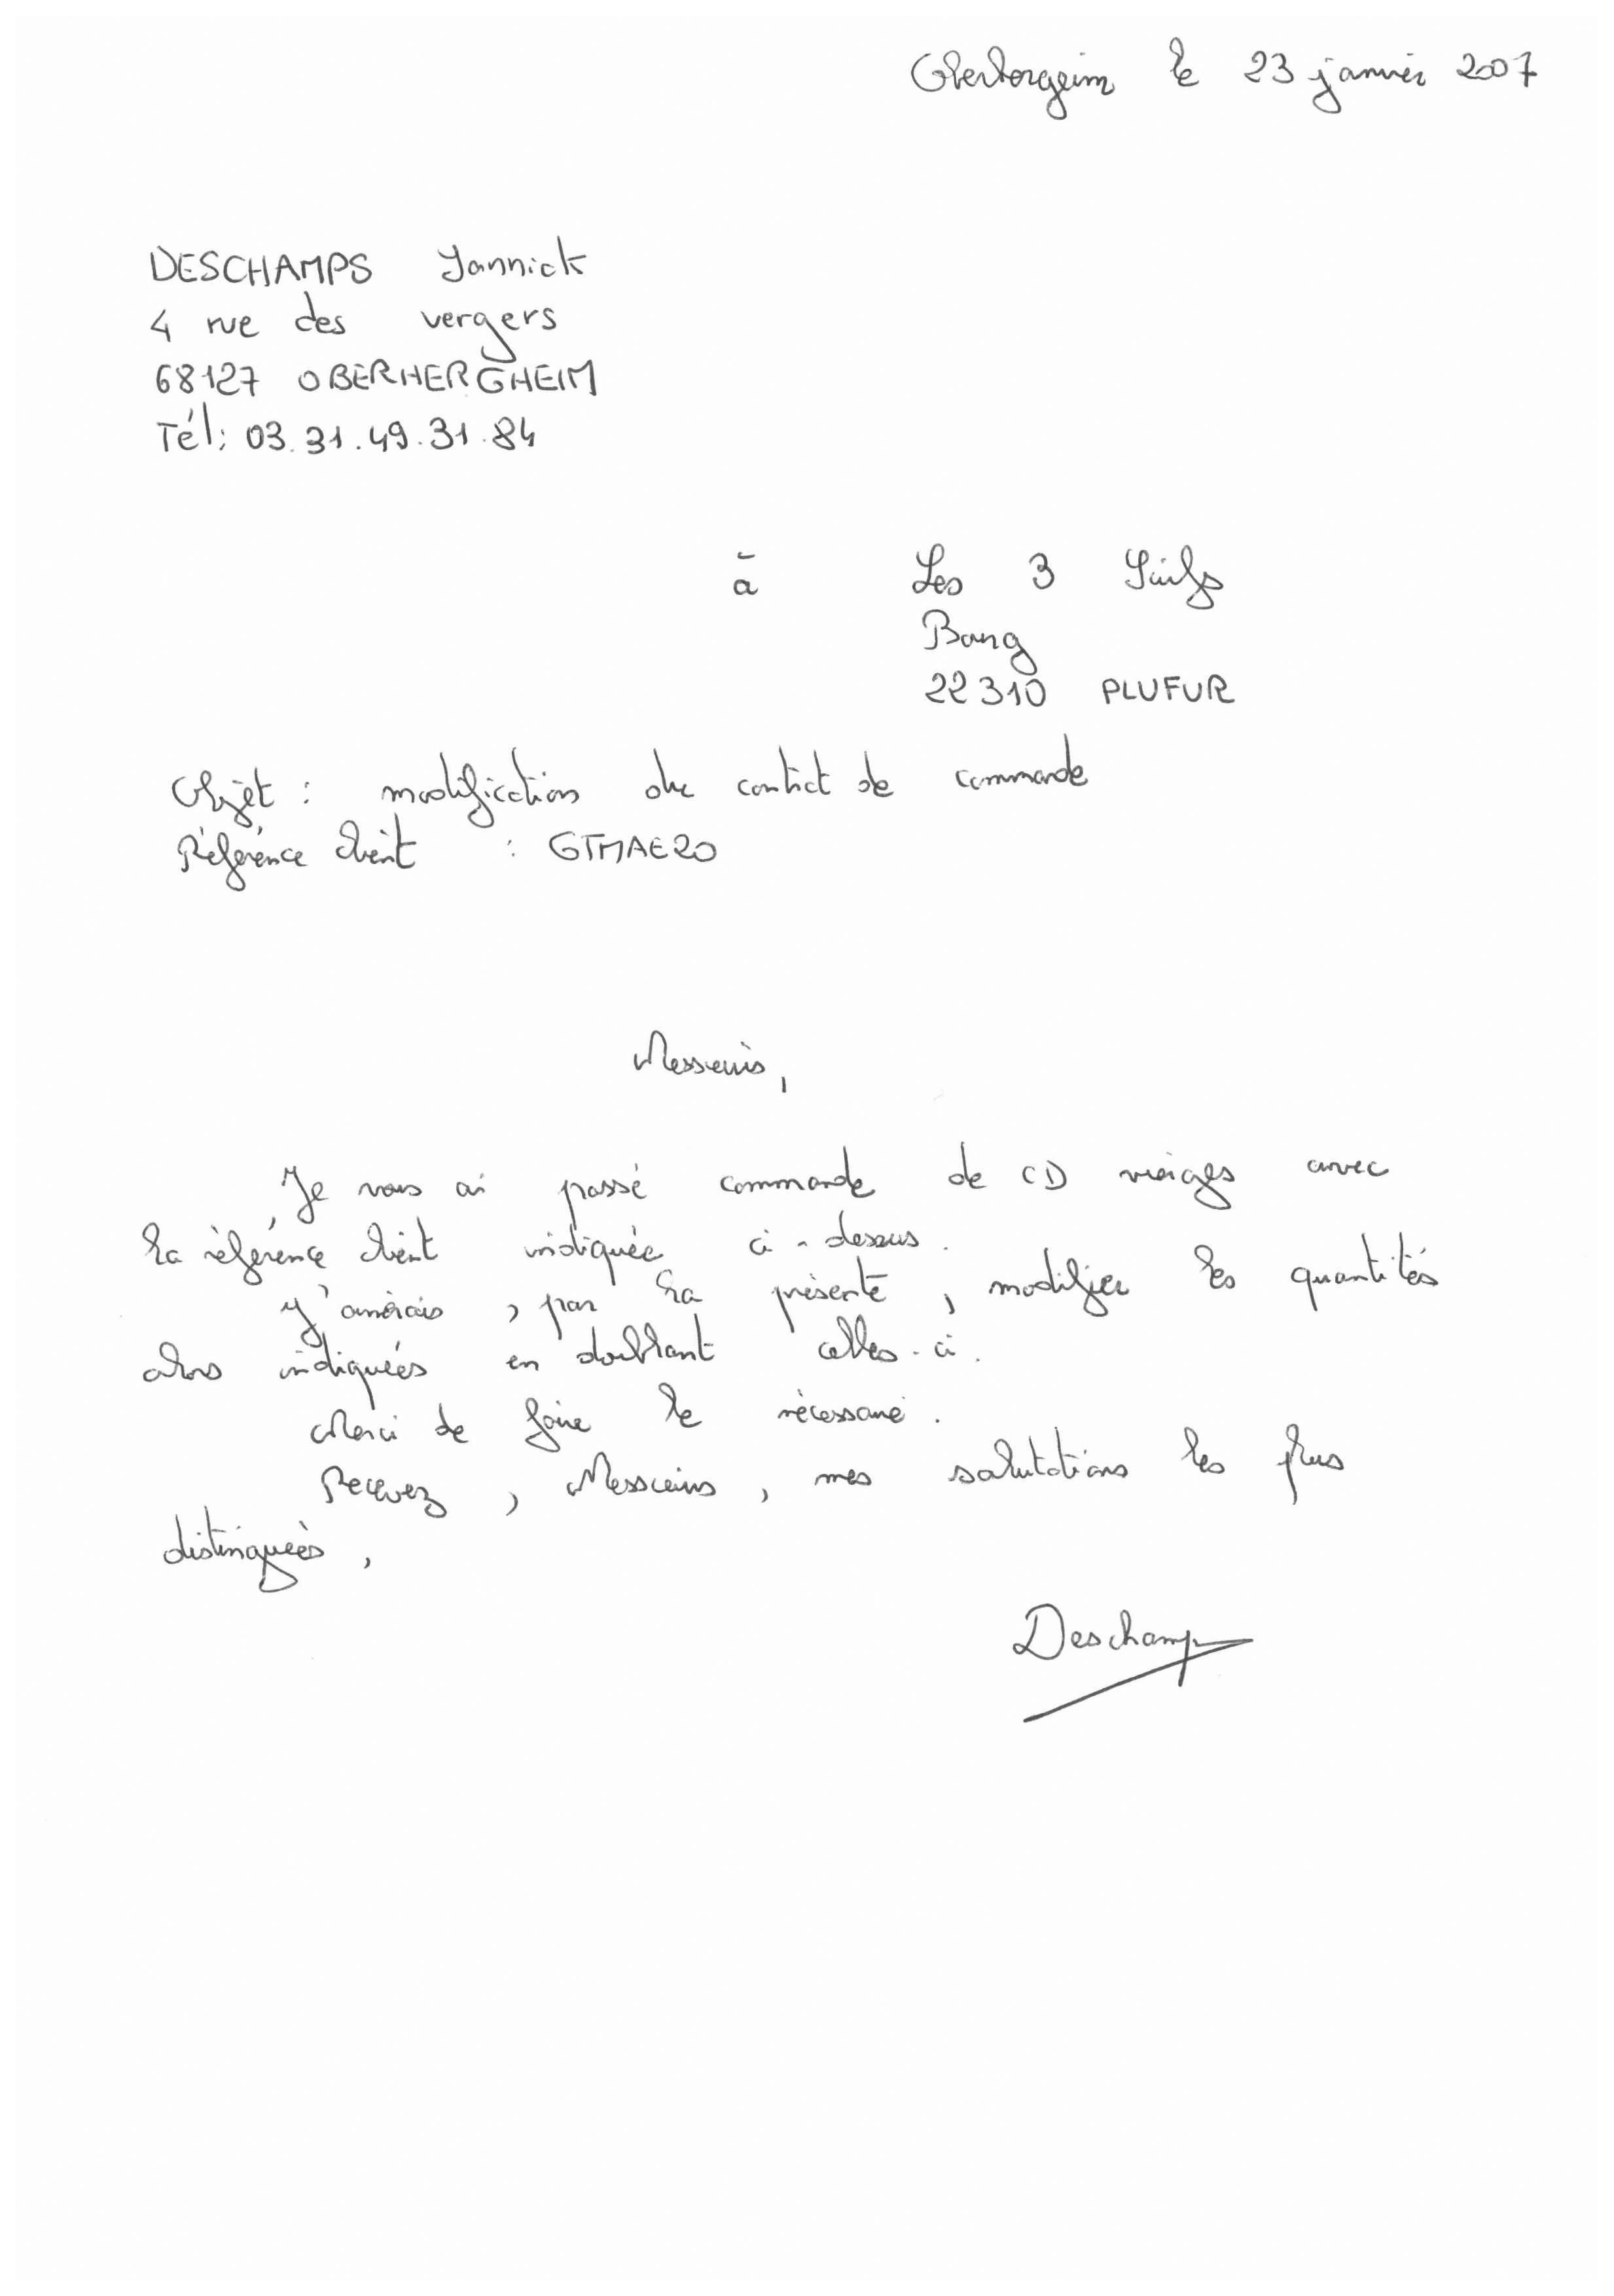 le 23 janvier 2007
DESCHAMPS Yannick
4 rue des vergers
68127 OBERHERGHEIM
Tél: 03.31.49.31.84
à Les 3 Suisses
Bourg
22310 PLUFUR
Objet : modification du contrat de commande
Référence client : GTMAE20
Messieurs,
Je vous ai passé commande de CD vierges avec
la référence client indiquée ci-dessus.
J'aimerais, par la présente, modifier les quantités
alors indiquées en doublant celles-ci.
Merci de faire le nécessaire.
Recevez, Messieurs, mes salutations les plus
distinguées,
Deschamps